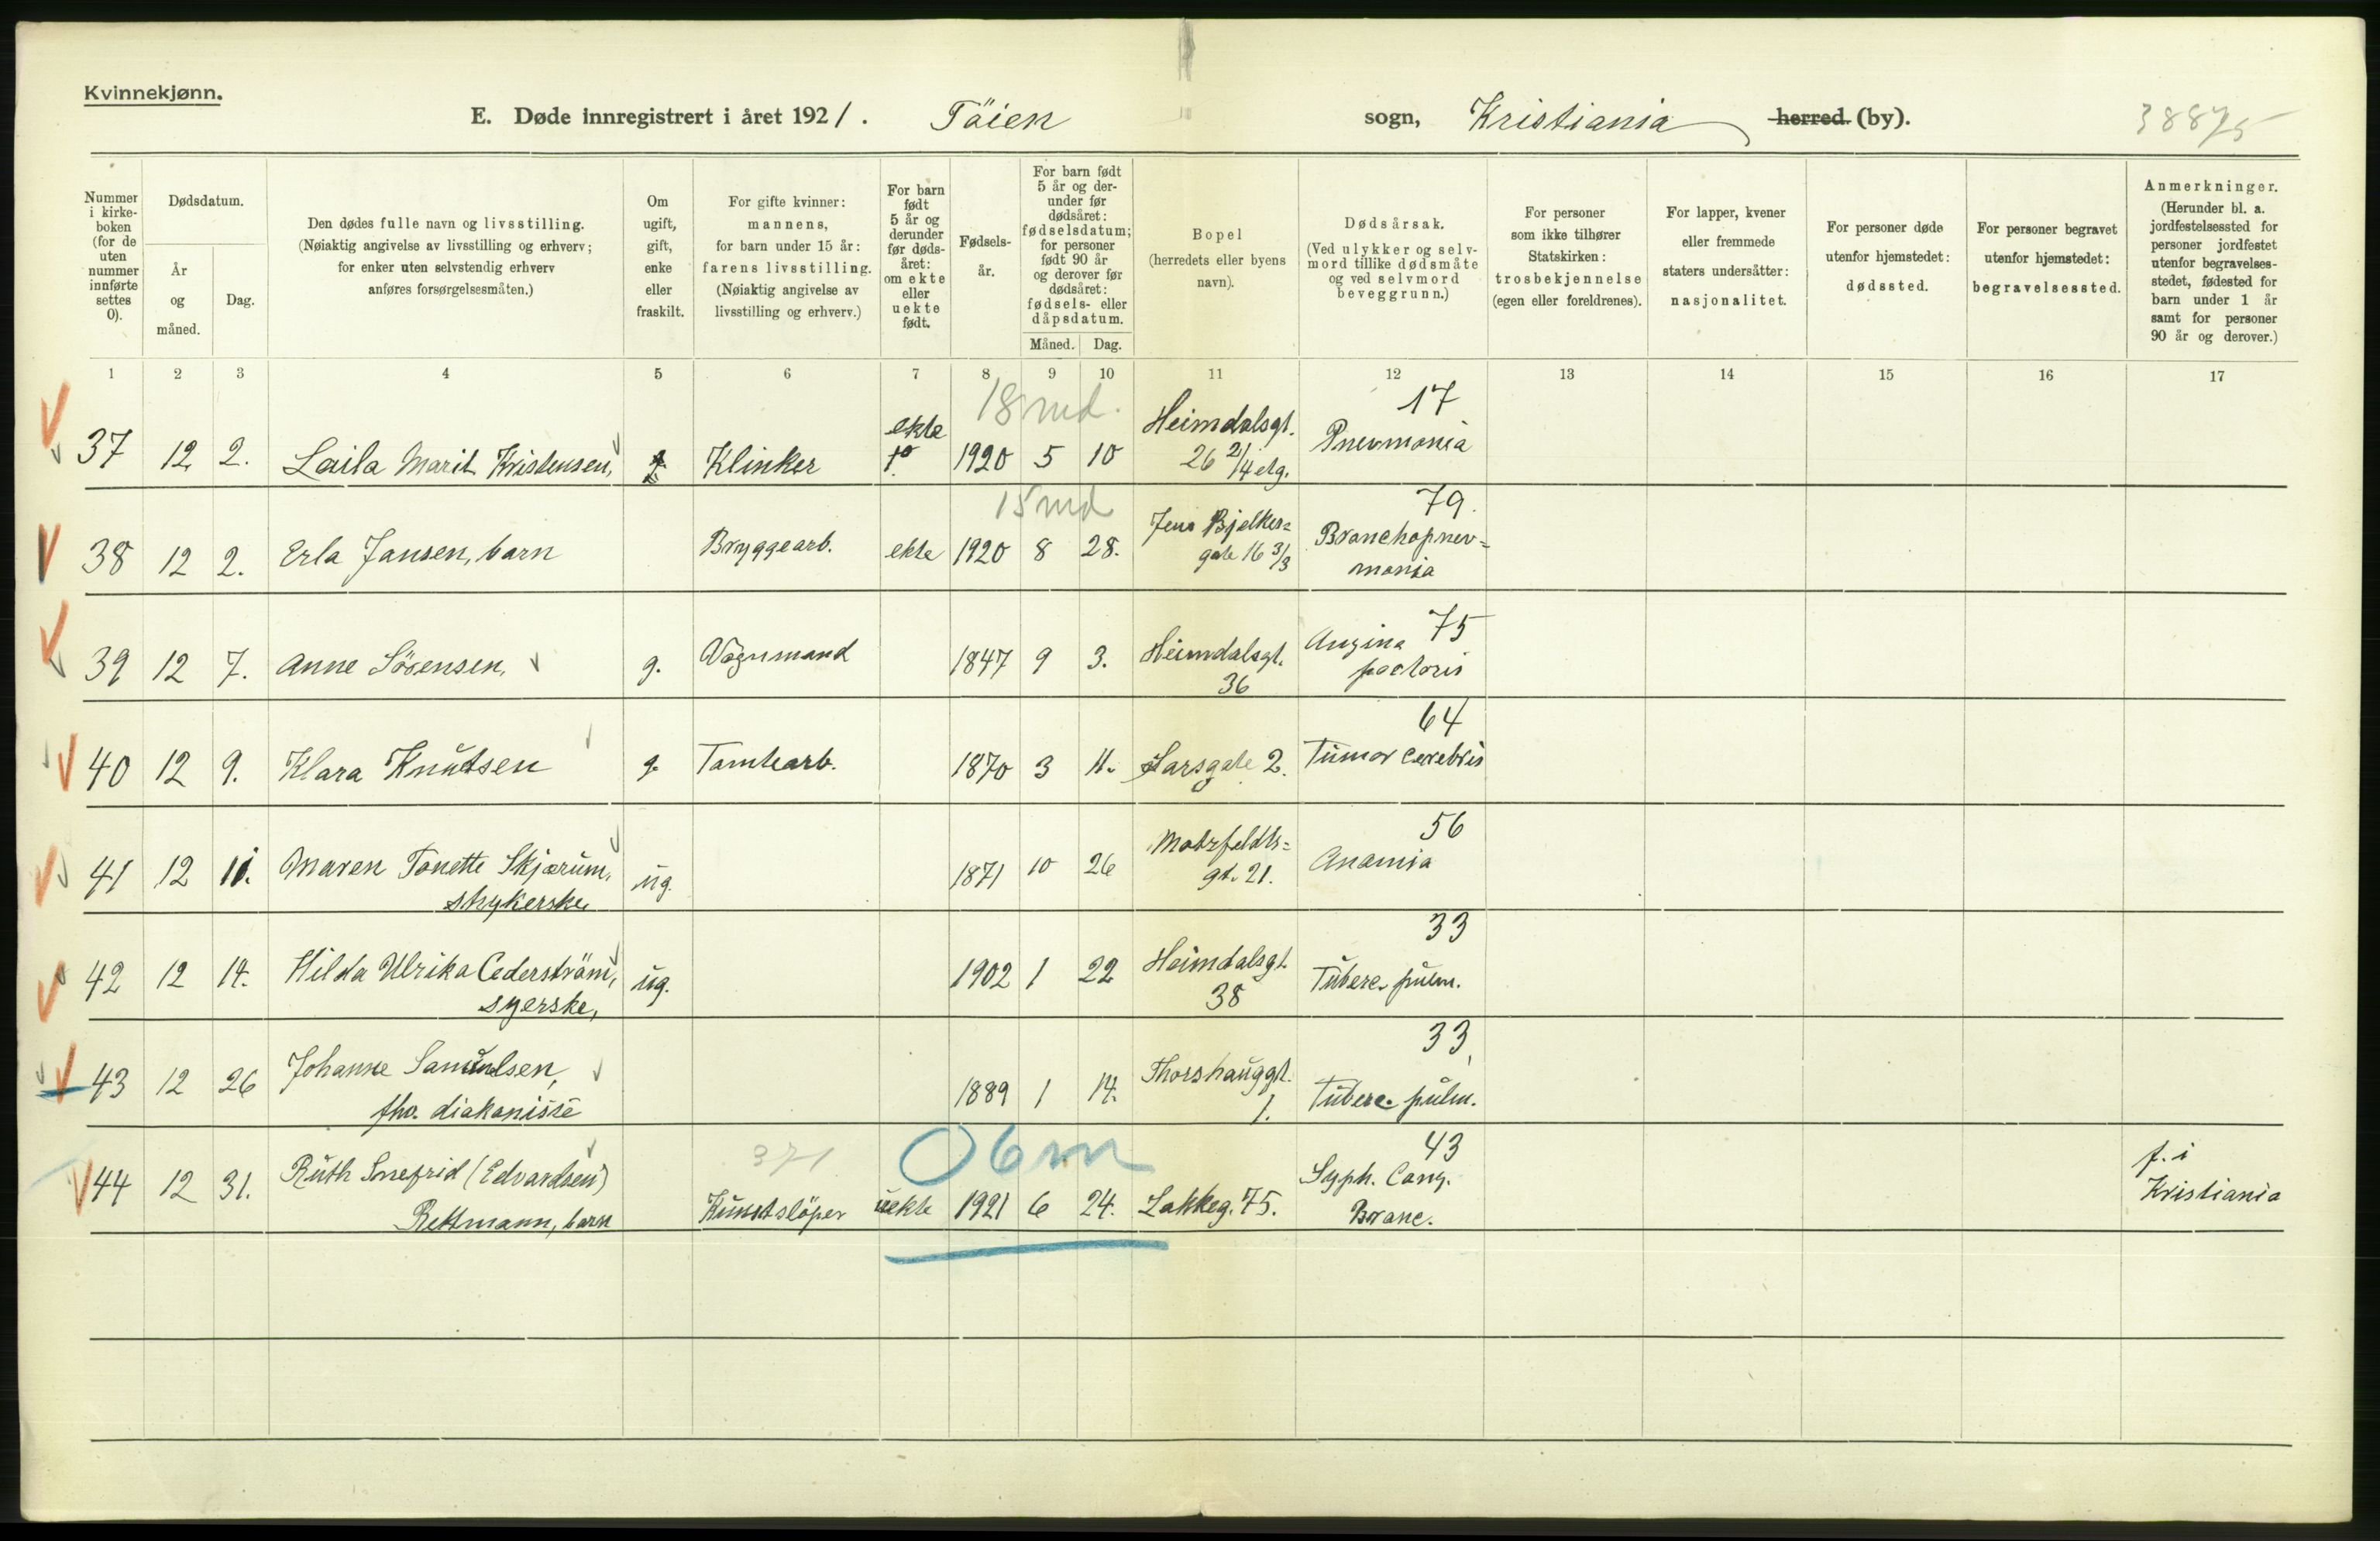 Kvinnekjønn.
E. Døde innregistrert i året 1921. Töien sogn, Kristiania herred (by).
Nummer i kirke-boken (for de uten nummer innførte settes 0).
Dødsdatum.
År og måned.
Dag.
Den dødes fulle navn og livsstilling.
(Nøiaktig angivelse av livsstilling og erhverv;
for enker uten selvstendig erhverv
anføres forsørgelsesmåten.)
Om ugift, gift, enke eller fraskilt.
For gifte kvinner:
mannens,
for barn under 15 år:
farens livsstilling.
(Nøiaktig angivelse av
livsstilling og erhverv.)
For barn født 5 år og derunder før døds-året: om ekte eller uekte født.
Fødsels-år.
For barn født 5 år og der-under før dødsåret: fødselsdatum; for personer født 90 år og derover før dødsåret: fødsels- eller dåpsdatum.
Måned. Dag.
Bopel
(herredets eller byens
navn).
Dødsårsak.
(Ved ulykker og selv-
mord tillike dødsmåte
og ved selvmord
beveggrunn.)
For personer
som ikke tilhører
Statskirken:
trosbekjennelse
(egen eller foreldrenes).
For lapper, kvener
eller fremmede
staters undersåtter:
nasjonalitet.
For personer døde
utenfor hjemstedet:
dødssted.
For personer begravet
utenfor hjemstedet:
begravelsessted.
Anmerkninger.
(Herunder bl. a.
jordfestelsessted for
personer jordfestet
utenfor begravelses-
stedet, fødested for
barn under 1 år
samt for personer
90 år og derover.)
1 2 3 4 5 6 7 8 9 10 11 12 13 14 15 16 17
18 md. 17
ekte Heimdalsgt.
37 12 2. Laila Marit Kristensen, Klinker 1920 5 10 26 2/4 etg. Pnevmonia
15 md 79.
38 12 2. Erla Jansen, barn Bryggearb. ekte 1920 8 28. Jens Bjelkes=
gate 16 3/3 Bronchopnev=
monia
75
39 12 7. Anne Sörensen, g. Vognmand 1847 9 3. Heimdalsgt.
36 Angina
pectoris
64
40 12 9. Klara Knutsen g. Tomtearb. 1870 3 11. Larsgate 2. Tumor cerebris
56
41 12 11. Maren Tonette Skjærum,
strykerske, ug. 1871 10 26 Motzfeldts=
gt. 21. Anæmia
33
42 12 14. Hilda Ulrika Cederström,
syerske, ug. 1902 1 22 Heimdalsgt.
38 Tuberc. pulm.
33
43 12 26 Johanne Samuelsen,
fho. diakonisse 1889 1 14. Thorshauggt.
1. Tuberc. pulm.
371 0 6 m 43
44 12 31. Ruth Snefrid (Edvardsen)
Rettmann, barn Kunstslöper uekte 1921 6 24. Lakkeg. 75. Syph. Cong.
Bronc. f. i
Kristiania